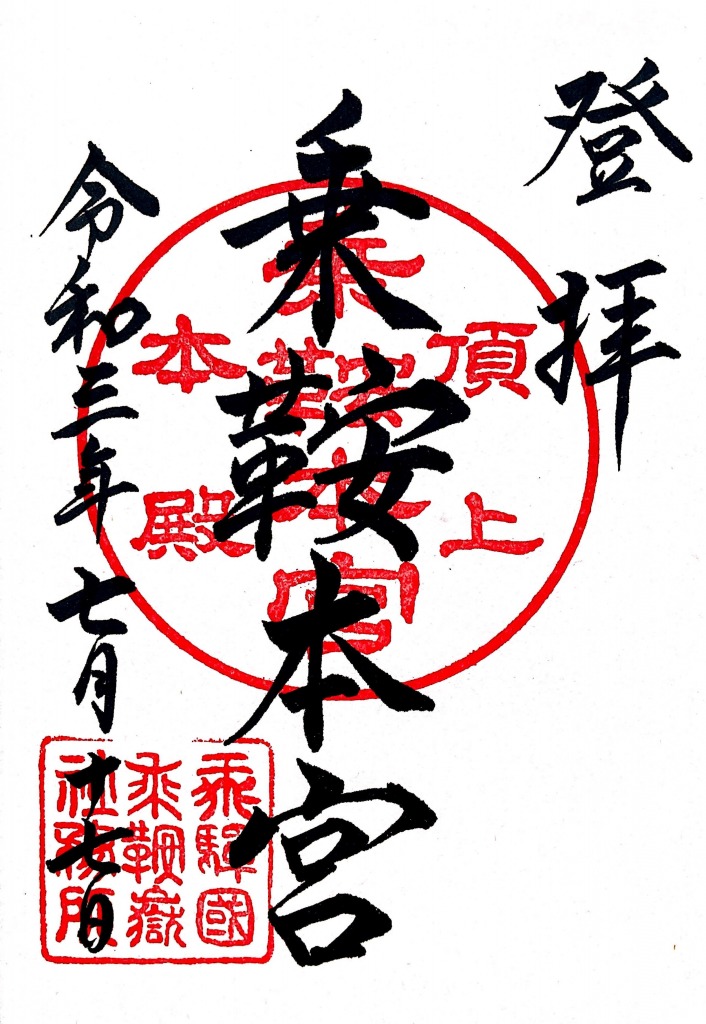 登拝
乗鞍本宮
令和三年七月十七日
頂上
乗鞍本宮
本殿
飛驒國
乗鞍嶽
社務所